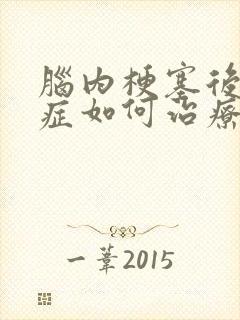 腦內梗塞後
症如何治療
一葦2015